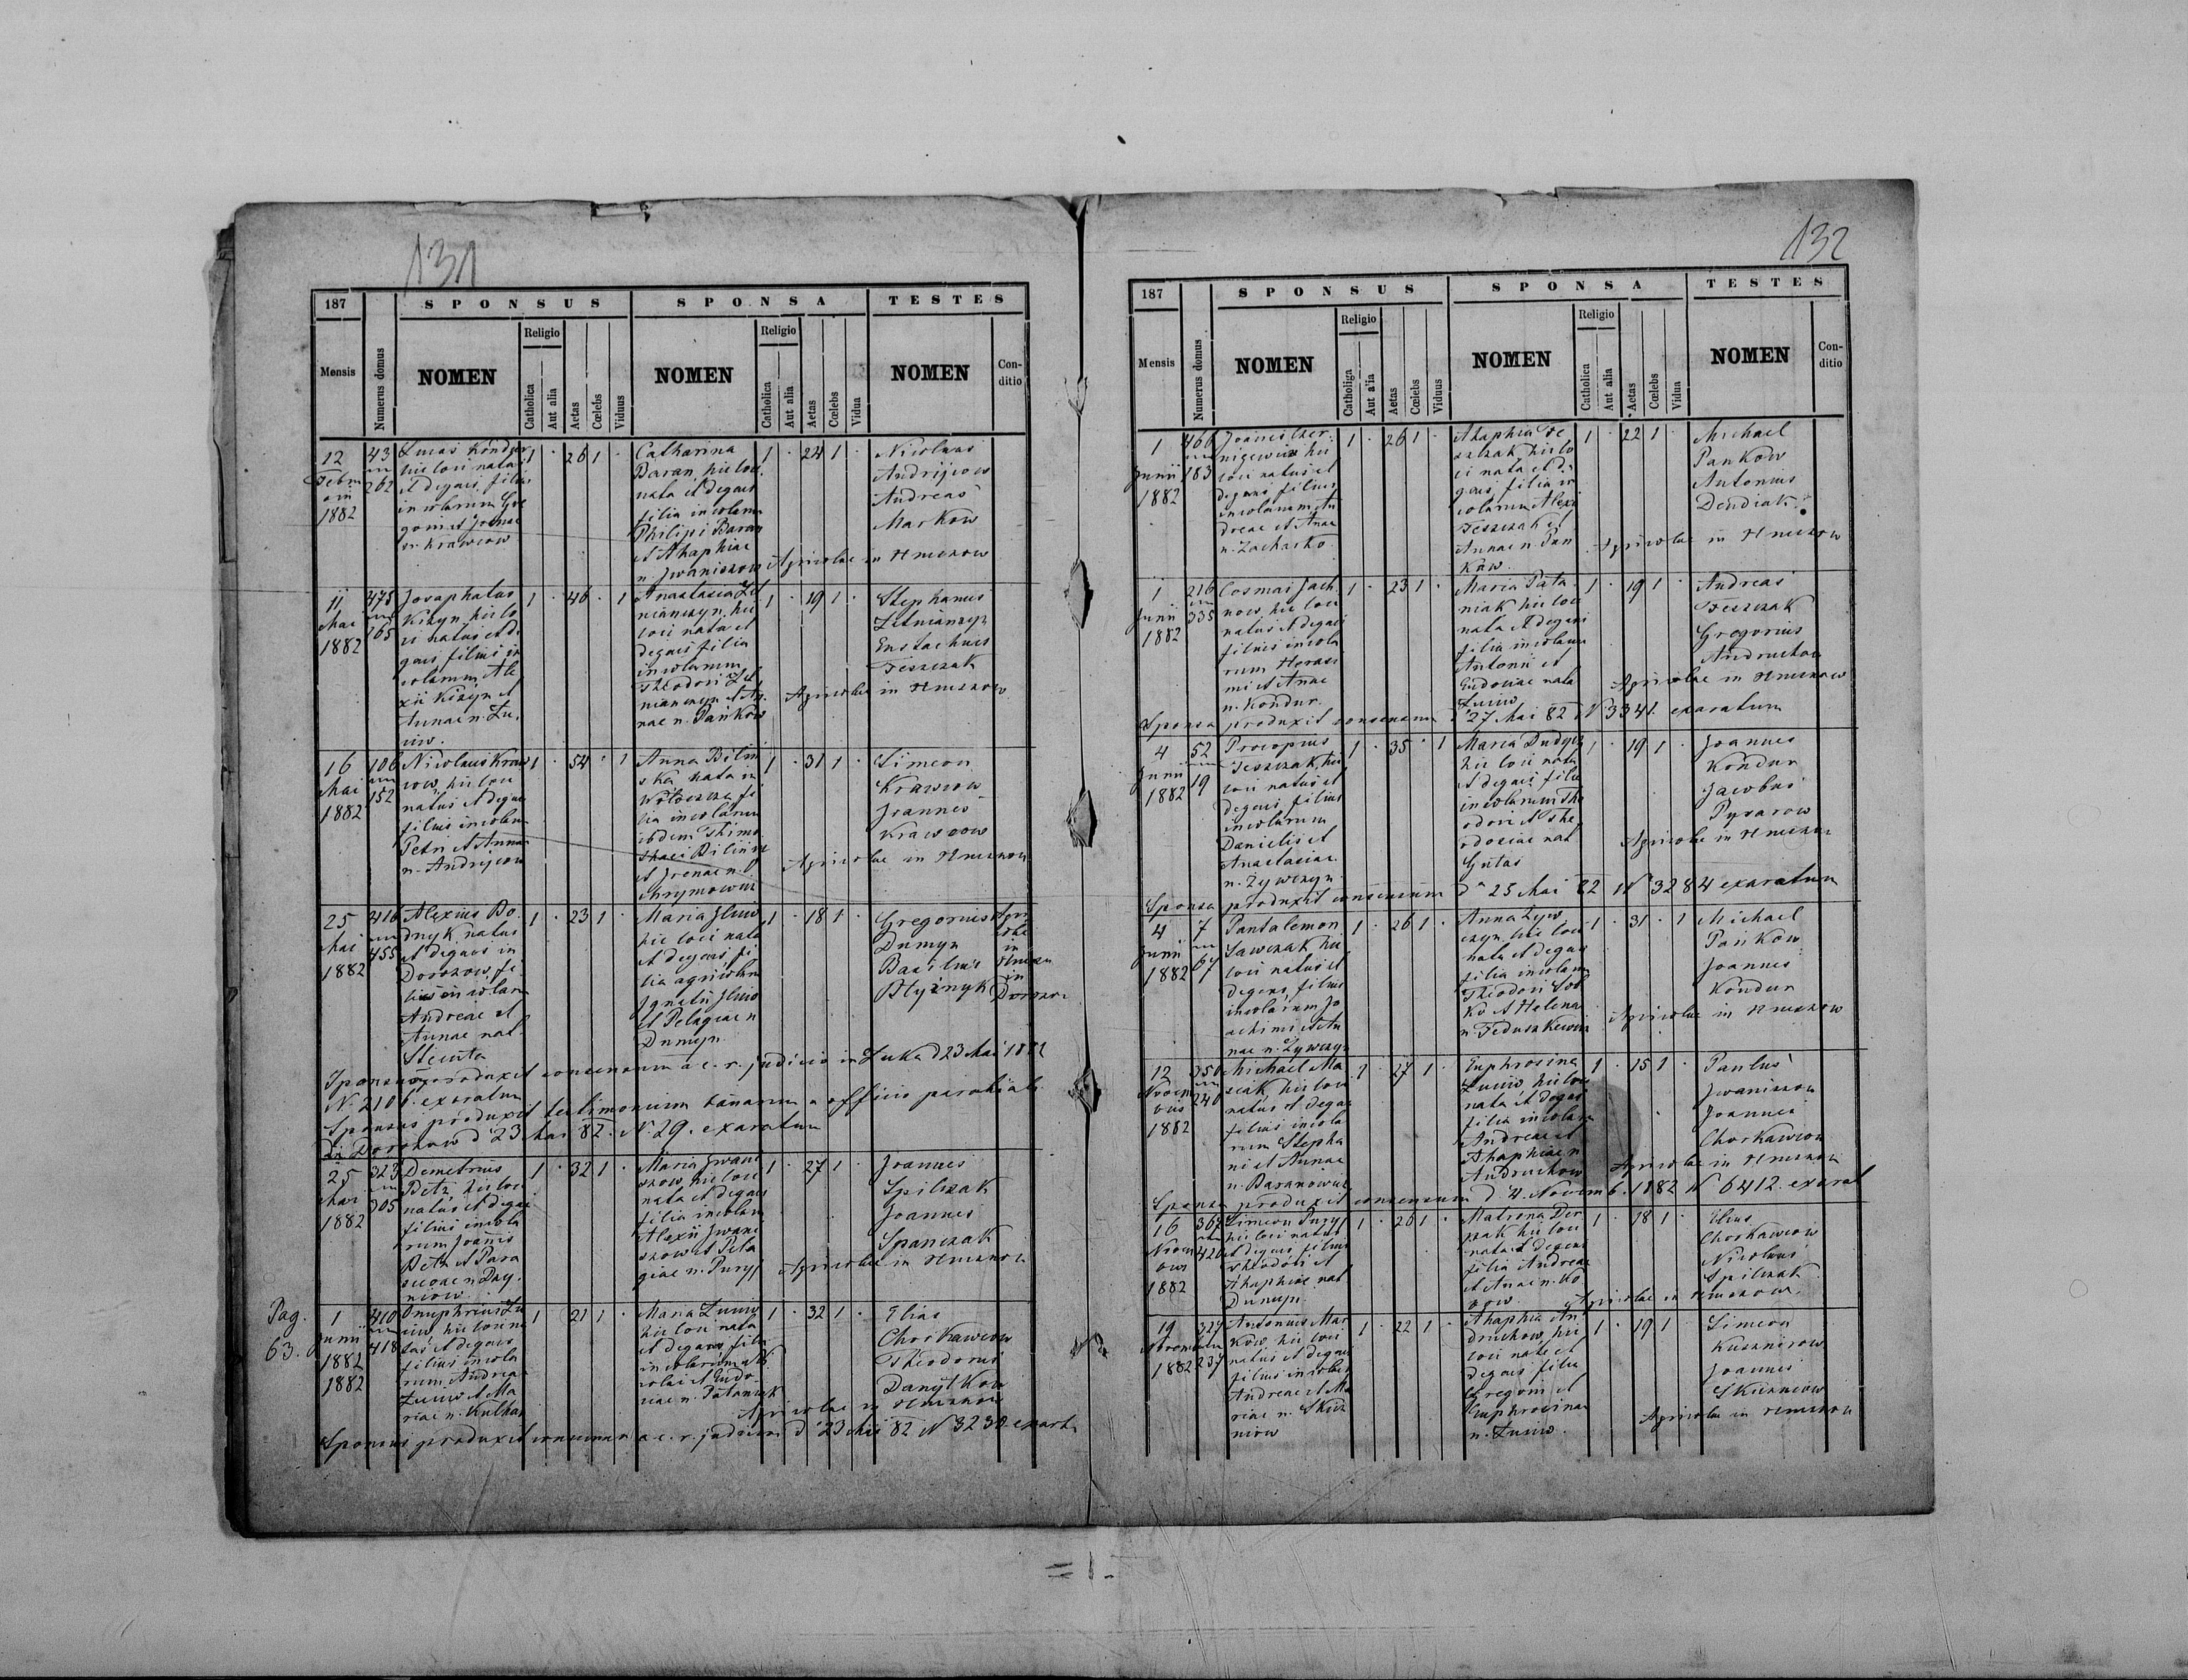 131
187
SPONSUS
SPONSA
TESTES
Mensis
Numerus domus
NOMEN
Religio
Catholica
Aut alia
Aetas
Cœlebs
Viduus
NOMEN
Religio
Catholica
Aut alia
Aetas
Cœlebs
Vidua
NOMEN
Con-
ditio
12
1882
43
262
Lucas Kondur
hic loci natus
et degens, filius
incolarum Gre
n. Krawcow
1 · 26 1 ·
Catharina
Baran, hic loci
nata et degens
filia incolarum
Philipi Baran
et Ahaphiae
n. Jwaniszow
1 · 24 1 ·
Nicolaus
Andrijcow
Andreas
Markow
Agricolae in Hruszow
11
Mai
1882
475
165
Josaphatus
Kizyn, hic lo
ci natus et de
gens filius in
colarum Ale
xii Kizyn et
Annae n. Zu
1 · 46 · 1
Anastasia Let
niaczyn, hic
loci nata et
degens filia
incolarum
Theodori Let
niaczyn et An
nae n. Pańkow
1 · 19 1 ·
Stephanus
Eustachius
Teszczak
Agricolae in Hruszow
16
Mai
1882
106
152
Nicolaus Kraw
cow, hic loci
natus et degens
filius incolarum
Petri et Annae
n. Andrijcow
1 · 54 · 1
Anna Bilin
ska nata in
Wołoszcza fi
lia incolarum
ibdem Thimo
et Irenae n.
Chrymowicz
1 · 31 1 ·
Simeon
Krawcow
Joannes
Krawcow
Agricolae in Hruszow
25
Mai
1882
416
455
Alexius Bo
dnyk natus
et degens in
Dorozow, fi
lius incolarum
Andreae et
Annae nat.
1 · 23 1 ·
Maria Iliw
hic loci nata
et degens, fi
lia agricolarum
Ignatii Iliw
et Pelagiae n
Dumyn
1 · 18 1 ·
Gregorius
Dumyn
Basilius
Agri
colae
in
Hruszow
in
Dorozow
Sponsa produxit consensum a c. r. judicio in Łuka d 23 Mai 1882
N. 2106. exaratum
Sponsus produxit testimonium bannorum a officio parochiali
in Dorozow d 23 Mai 82. N. 29. exaratum
25
Mai
1882
323
305
Demetrius
Betz, hic loci
natus et degens
filius incola
rum Joannis
Betz et Para
n. Day
niow
1 · 32 1 ·
Maria Jwani
szow, hic loci
nata et degens
filia incolarum
Alexii Jwani
szow et Pela
giae n. Puryj
1 · 27 1 ·
Joannes
Spilczak
Joannes
Spanczak
Agricolae in Hruszow
Pag.
63.
1
Junii
1882
1882
410
418
Onuphrius Zu
hic loci na
tus et degens
filius incola
rum Andreae
et Ma
riae n.
1 · 21 1 ·
Maria
hic loci nata
et degens filia
incolarum Ni
colai et Eudo
ciae n. Pataniak
1 · 32 1 ·
Elias
Chorkawcow
Theodorus
Danytkow
Agricolae in Hruszow
Sponsus produxit consensum a c. r. judicio d 23 Mai 82 N 3230 exarat.
132
187
SPONSUS
SPONSA
TESTES
Mensis
Numerus domus
NOMEN
Religio
Catholiga
Aut alia
Aetas
Cœlebs
Viduus
NOMEN
Religio
Catholica
Aut alia
Aetas
Cœlebs
Vidua
NOMEN
Con-
ditio
1
Junii
1882
466
183
loci natus et
degens, filius
incolarum An
dreae et Annae
n. Zacharko
1 · 26 1 ·
Ahaphia Te
szczak hic lo
ci nata et de
gens, filia in
colarum Alexi
Teszczak et
Annae n. Pan
kow
1 · 22 1 ·
Michael
Pankow
Antonius
Dendiak
Agricolae in Hruszow
1
Junii
1882
216
335
Cosmas Jach
now, hic loci
natus et degens
filius incola
rum Herasi
mi et Annae
n. Kondur
1 · 23 1 ·
Maria Pata
niak hic loci
nata et degens
filia incolarum
Antonii et
Eudociae nata
1 · 19 1 ·
Andreas
Teszczak
Gregorius
Andruchow
Agricolae in Hruszow
Sponsa produxit consensum d 27 Mai 82 N 3341. exaratum
4
Junii
1882
52
19
Procopius
Teszczak, hic
loci natus et
degens, filius
incolarum
Danielis et
Anastasiae
n. Zywczyn
1 · 35 · 1
Maria Dudycz
hic loci nata
et degens filia
incolarum The
odori et The
odosiae nat
Gutas
1 · 19 1 ·
Joannes
Kondur
Jacobus
Pysarow
Agricolae in Hruszow
Sponsa produxit consensum d 25 Mai 82 N 3284 exaratum
4
Junii
1882
7
67
Pantalemon
Sawczak hic
loci natus et
degens, filius
incolarum Jo
achimi et An
nae n. Zywczyn
1 · 26 1 ·
Anna Zyw
czyn, hic loci
nata et degens
filia incolarum
Theodori
et Helenae
n. Feduszkewicz
1 · 31 · 1
Michael
Pańkow
Joannes
Kondur
Agricolae in Hruszow
12
Novem
bris
1882
350
240
Michael Ma
sciak hic loci
natus et degens
filius incola
rum Stepha
ni et Annae
n. Baranowicz
1 · 27 1 ·
Euphrosina
hic loci
nata et degens
filia incolarum
Andreae et
Ahaphiae n.
Andruchow
1 · 15 1 ·
Paulus
Jwaniszow
Joannes
Chorkawcow
Agricolae in Hruszow
Sponsa produxit consensum d. 4. Novemb. 1882 N 6412. exarat
16
1882
367
420
Simeon Puryj
hic loci natus
et degens, filius
Theodori et
Ahaphiae nat
Dumyn
1 · 26 1 ·
Matrona Der
kak hic loci
nata et degens
filia Andreae
et Annae n. Ko
1 · 18 1 ·
Elias
Chorkawcow
Nicolaus
Spilczak
Agricolae in Hruszow
19
Novembris
1882
327
237
Antonius Mar
kow, hic loci
natus et degens
filius incolarum
Andreae et Ma
riae n. Skuz
niow
1 · 22 1 ·
Ahaphia An
druchow, hic
loci nata et
degens filia
Gregorii et
Euphrosinae
1 · 19 1 ·
Simeon
Kusznirow
Joannes
Skuzniow
Agricolae in Hruszow
= 1 -